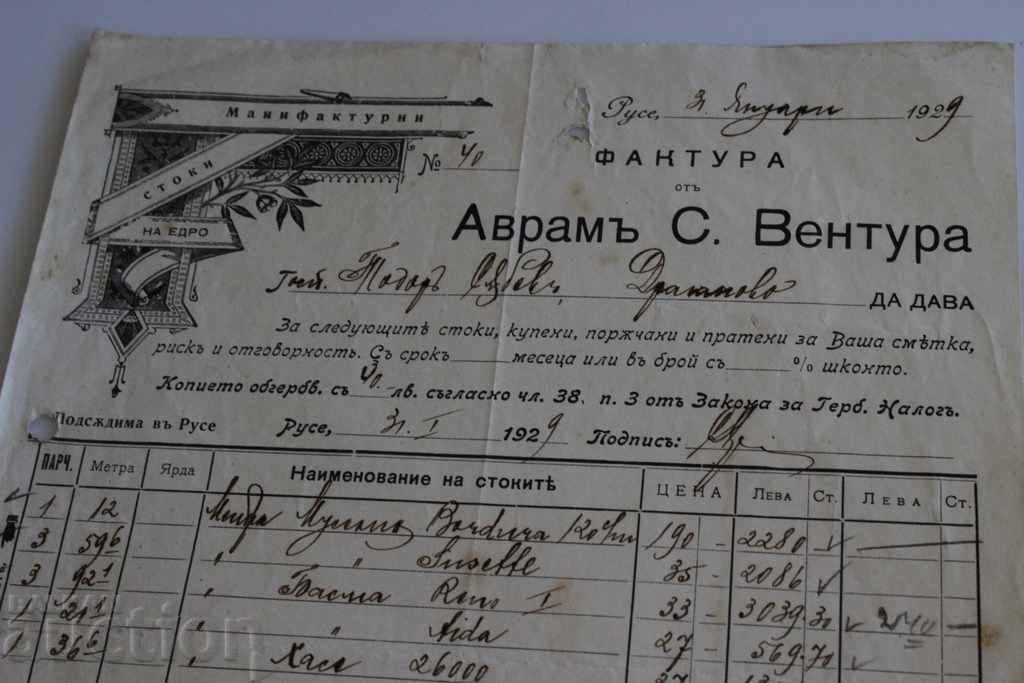 Манифактурни
стоки
НА ЕДРО
Русе, 31 Януари 1929
№ 40
ФАКТУРА
отъ
Аврамъ С. Вентура
Тодоръ ДА ДАВА
За следующитѣ стоки, купени, порѫчани и пратени за Ваша смѣтка,
рискъ и отговорность. Съ срокъ месеца или въ брой съ % шконто.
Копието обгербв. съ 40 лв. съгласно чл. 38, п. 3 отъ Закона за Герб. Налогъ.
Подсѫдима въ Русе Русе, 31. I 1929 Подписъ:
ПАРЧ. Метра Ярда Наименование на стокитѣ ЦЕНА ЛЕВА СТ. ЛЕВА СТ.
1 12 Bordura 120 190 - 2280
3 59 6 " " Susette 35 - 2086
3 92 1 " Басма I 33 - 3039.30
1 21 1 " " Aida 27 - 569.70
1 36 6 " Хасе 26000